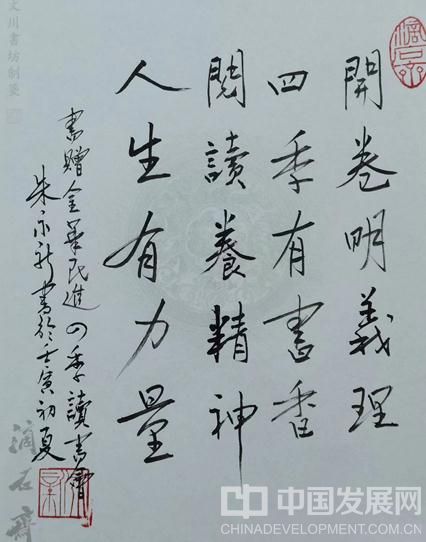 開卷明義理
四季有書香
閱讀養精神
人生有力量
書贈金華民進四季讀書會
朱亦新書於壬寅初夏
文川書坊制箋
滴石齋
中国发展网
CHINADEVELOPMENT.COM.CN